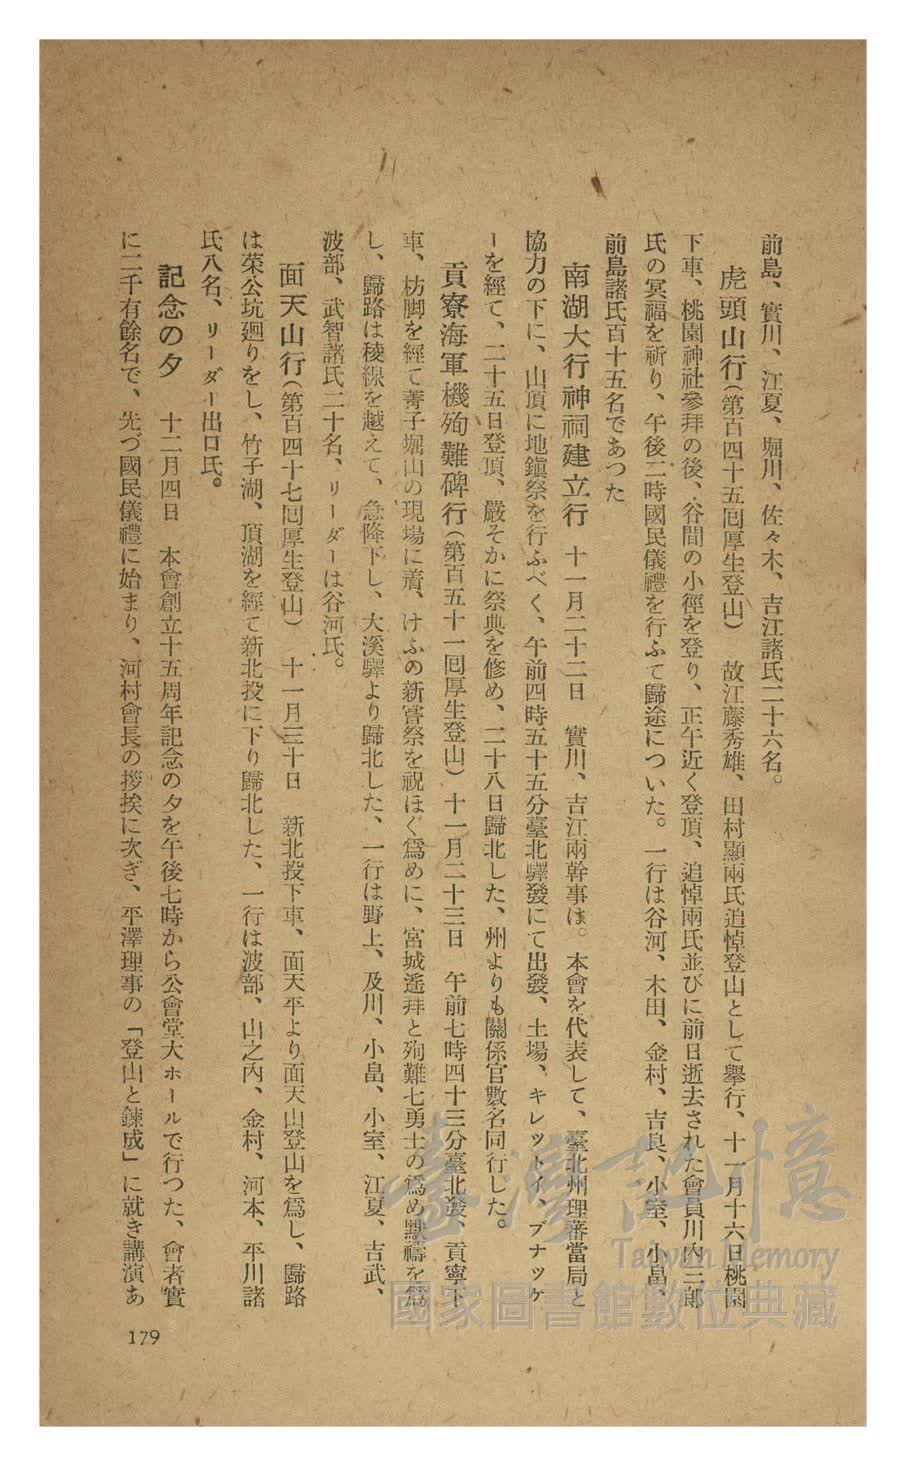 前島、實川、江夏、堀川、佐々木、吉江諸氏二十六名。
虎頭山行(第百四十五囘厚生登山) 故江藤秀雄、田村顯兩氏追悼登山として擧行、十一月十六日桃園
下車、桃園神社參拜の後、谷間の小徑を登り、正午近く登頂、追悼兩氏並びに前日逝去された會員川內三郎
氏の冥福を祈り、午後二時國民儀禮を行ふて歸途についた。一行は谷河、木田、金村、吉良、小室、小畠、
前島諸氏百十五名であつた
南湖大行神祠建立行 十一月二十二日 實川、吉江兩幹事は。本會を代表して、臺北州理蕃當局と
協力の下に、山頂に地鎭祭を行ふべく、午前四時五十五分臺北驛發にて出發、土場、キレットイ、ブナッケ
ーを經て、二十五日登頂、嚴そかに祭典を修め、二十八日歸北した、州よりも關係官數名同行した。
貢寮海軍機殉難碑行(第百五十一囘厚生登山) 十一月二十三日 午前七時四十三分臺北發、貢寧下
車、枋脚を經て菁子堀山の現場に着、けふの新嘗祭を祝ほぐ爲めに、宮城遙拜と殉難七勇士の爲め默禱を爲
し、歸路は稜線を越えて、急降下し、大溪驛より歸北した、一行は野上、及川、小畠、小室、江夏、吉武、
波部、武智諸氏二十名、リーダーは谷河氏。
面天山行(第百四十七囘厚生登山) 十一月三十日 新北投下車、面天平より面天山登山を爲し、歸路
は茱公坑廻りをし、竹子湖、頂湖を經て新北投に下り歸北した、一行は波部、山之內、金村、河本、平川諸
氏八名、リーダー出口氏。
記念の夕 十二月四日 本會創立十五周年記念の夕を午後七時から公會堂大ホールで行つた、會者實
に二千有餘名で、先づ國民儀禮に始まり、河村會長の挨拶に次ぎ、平澤理事の「登山と鍊成」に就き講演あ
179
臺灣記憶
Taiwan Memory
國家圖書館數位典藏